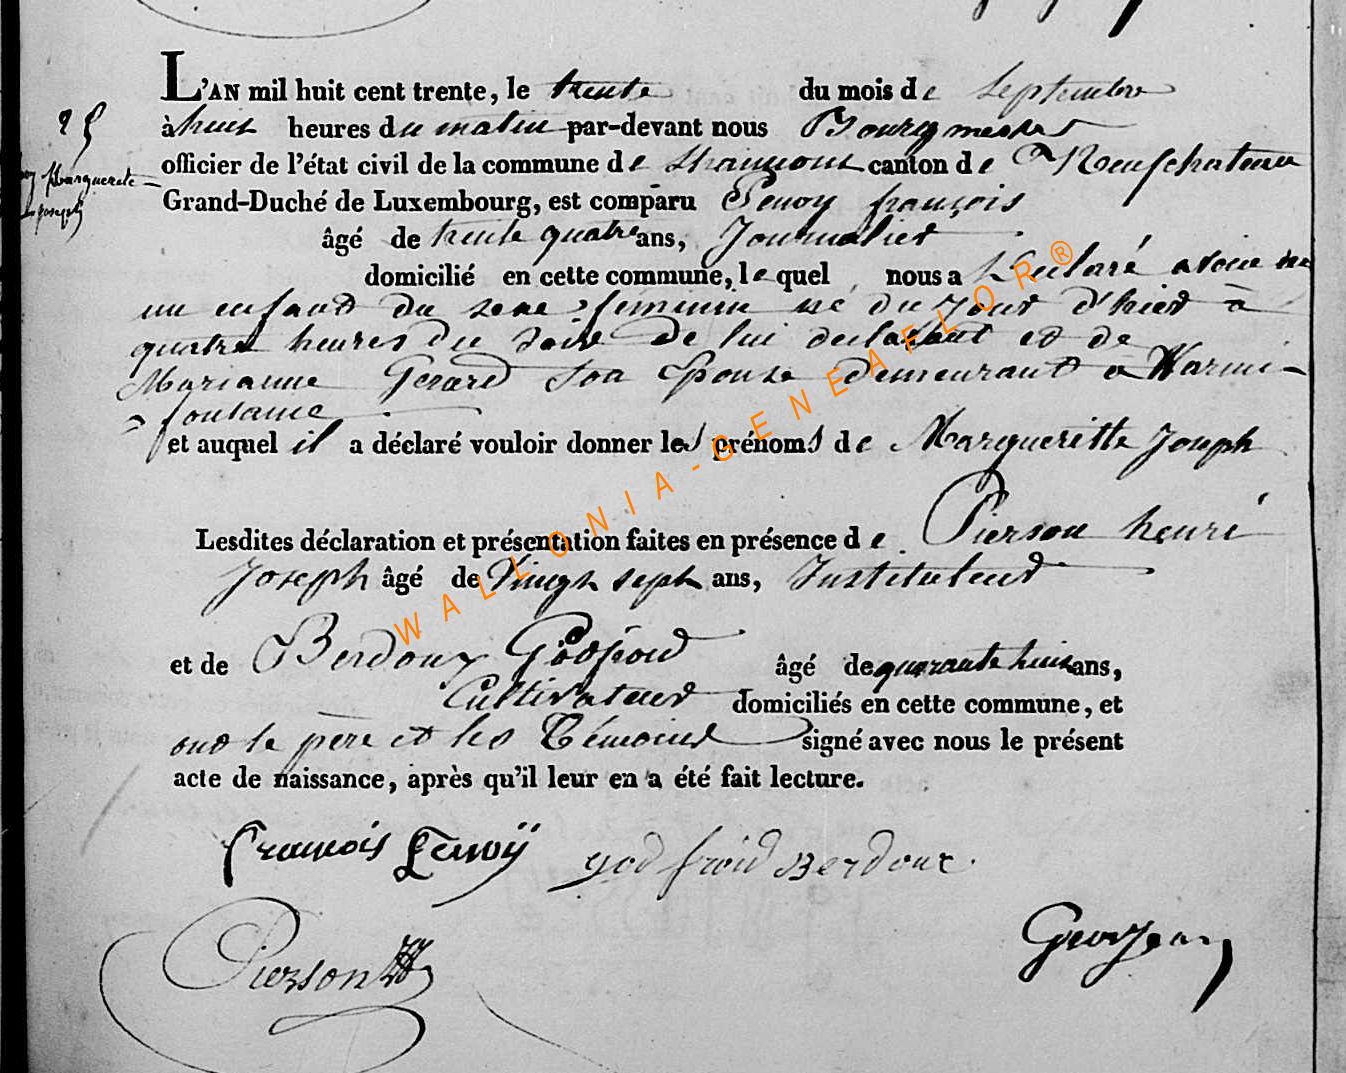 L'AN mil huit cent trente, le trente du mois de Septembre
25
à huit heures du matin par-devant nous Bourgmestre
officier de l'état civil de la commune de Straimont canton de Neufchateau
Marguerite
joseph
Grand-Duché de Luxembourg, est comparu françois
âgé de trente quatre ans, Journalier
domicilié en cette commune, lequel nous a Declaré avoir né
un enfant du sexe feminin né du Jour d'hier à
quatre heures du Soir de lui declarant et de
Marianne Gerard Son Epouse demeurant a Warmi-
-fontaine
et auquel il a déclaré vouloir donner les prénoms de Margueritte Joseph
Lesdites déclaration et présentation faites en présence de Pierson henri
Joseph âgé de Vingt sept ans, Instituteur
et de Berdoux Godfroid âgé de quarante huit ans,
Cultivateur domiciliés en cette commune, et
ont le père et les Témoins signé avec nous le présent
acte de naissance, après qu'il leur en a été fait lecture.
françois godfroid Berdoux.
Pierson
Grosjean
WALLONIA-GENEAFLOR®